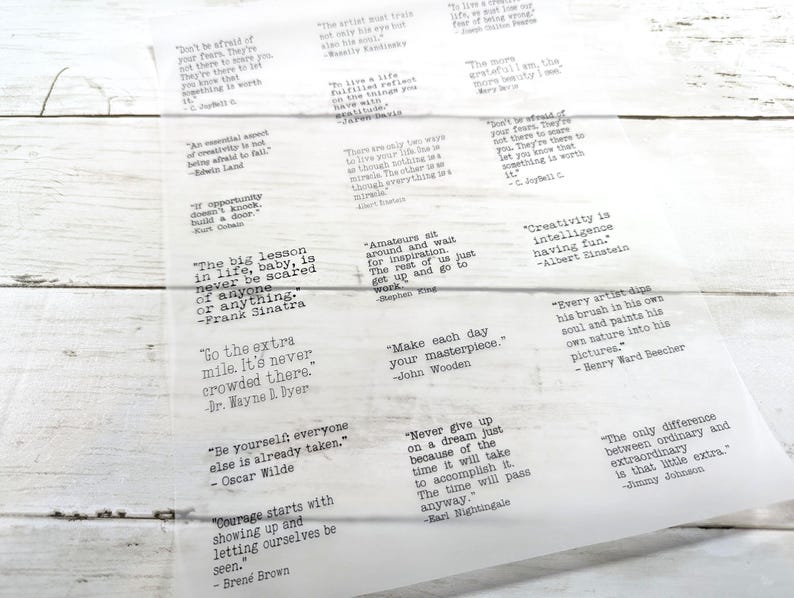 "Don't be afraid of
your fears. They're
not there to scare you.
They're there to let
you know that
something is worth
it."
- C. JoyBell C.
"An essential aspect
of creativity is not
being afraid to fail."
-Edwin Land
"If opportunity
doesn't knock,
build a door."
-Kurt Cobain
"The big lesson
in life, baby, is
never be scared
of anyone
or anything."
-Frank Sinatra
"Go the extra
mile. It's never
crowded there."
-Dr. Wayne D. Dyer
"Be yourself; everyone
else is already taken."
- Oscar Wilde
"Courage starts with
showing up and
letting ourselves be
seen."
- Brené Brown
"The artist must train
not only his eye but
also his soul."
-Wassily Kandinsky
"To live a life
fulfilled reflect
on the things you
have with
gratitude."
-Jaren Davis
"There are only two ways
to live your life. One is
as though nothing is a
miracle. The other is as
though everything is a
miracle."
-Albert Einstein
"Amateurs sit
around and wait
for inspiration.
The rest of us just
get up and go to
work."
-Stephen King
"Make each day
your masterpiece."
-John Wooden
"Never give up
on a dream just
because of the
time it will take
to accomplish it.
The time will pass
anyway."
-Earl Nightingale
"To live a creative
life, we must lose our
fear of being wrong."
- Joseph Chilton Pearce
"The more
grateful I am, the
more beauty I see."
-Mary Davis
"Don't be afraid of
your fears. They're
not there to scare
you. They're there to
let you know that
something is worth
it."
- C. JoyBell C.
"Creativity is
intelligence
having fun."
-Albert Einstein
"Every artist dips
his brush in his own
soul and paints his
own nature into his
pictures."
- Henry Ward Beecher
"The only difference
between ordinary and
extraordinary
is that little extra."
-Jimmy Johnson